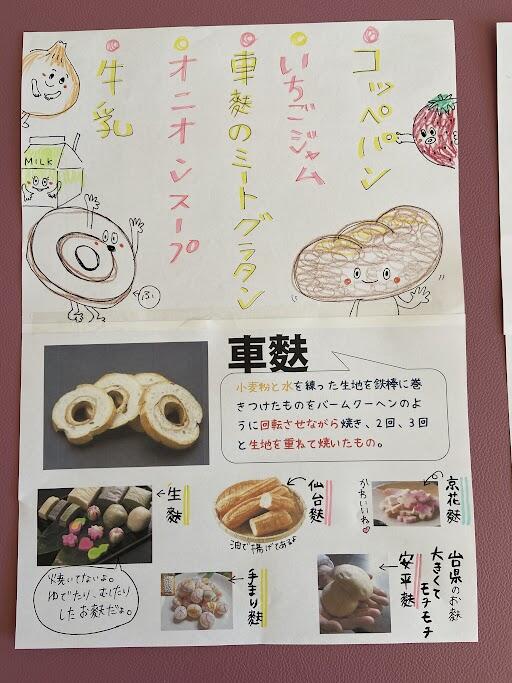 コッペパン
いちごジャム
車麩のミートグラタン
オニオンスープ
牛乳
MILK
ふ
車麩
小麦粉と水を練った生地を鉄棒に巻
きつけたものをバームクーヘンのよ
うに回転させながら焼き、2回、3回
と生地を重ねて焼いたもの。
京花麩
かわいいね
仙台麩
油で揚げてあるよ
生麩
焼いてないよ。
ゆでたり、むしたり
したお麩だよ。
岩県のお麩
大きくて
モチモチ
安平麩
手まり麩